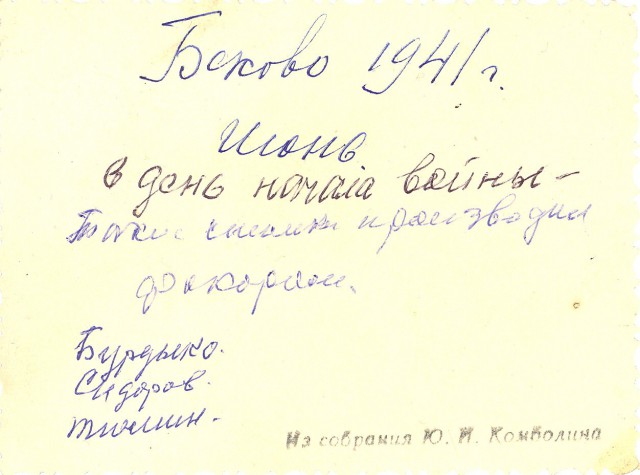 Беково 1941 г.
Июнь
в день начала войны -
Такие снимки производил
фокором.
Бурдыко.
Сидоров.
Тюлин.
Из собрания Ю. И. Комболина